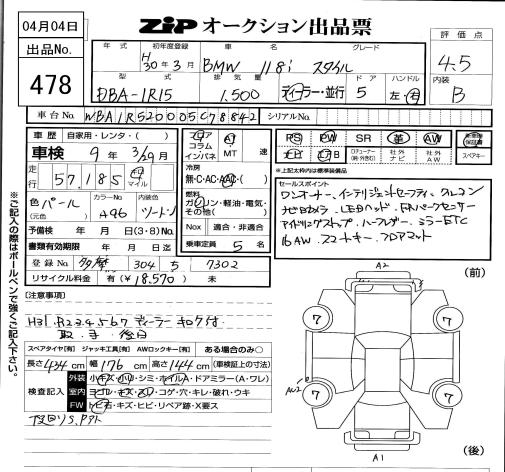 04月04日
出品No.
478
ZIP オークション出品票
評価点
4.5
内装
B
年式
初年度登録
車名
グレード
H30年3月
BMW 118i スタイル
型式
排気量
ドア
ハンドル
DBA-1R15
1,500
ディーラー・並行
5
左・右
車台No.
シリアルNo.
車歴
自家用・レンタ・( )
車検
9年3/29月
走行
57,185
キロ
マイル
色
(元色)
パール
カラーNo.
A96
内装色
ツートン
予備検 年 月 日(3・8) No.
書類有効期限 年 月 日迄
登録No.
多摩 304 さ 7302
リサイクル料金 有(¥18,570) 未
フロア
コラム
インパネ
AT
MT
速
冷房
無・C・AC・AAC・( )
燃料
ガソリン・軽油・電気・
その他( )
Nox
適合・非適合
乗車定員 5 名
PS
PW
SR
革
AW
ナビ
エアB
社外
ナビ
社外
AW
スペアキー
※上記太枠内は装備標準
セールスポイント
ワンオーナー、インテリジェントセーフティ、クルコン
ナビ Bカメラ LEDヘッド、F.Rパークセンサー
アイドリングストップ、ハーフレザー、ミラーETC
16AW、スマートキー、フロアマット
※ご記入の際はボールペンで強くご記入下さい。
[注意事項]
H31.R2.3.4.5.6.7 ディーラーキロク付
取.手 後日
スペアタイヤ[有] ジャッキ工具[有] AWロックキー[有] ある場合のみ○
長さ434cm 幅176cm 高さ144cm (車検証上の寸法)
検査記入
外装
小キズ・小凹・シミ・ホイルA・ドアミラー(A・ワレ)
室内
ヨゴレ・キズ・スレ・コゲ・穴・キレ・破れ・ウキ
FW
トビ石・キズ・ヒビ・リペア跡・X要ス
下回りS.アト
A2
(前)
7
7
7
7
A1
(後)